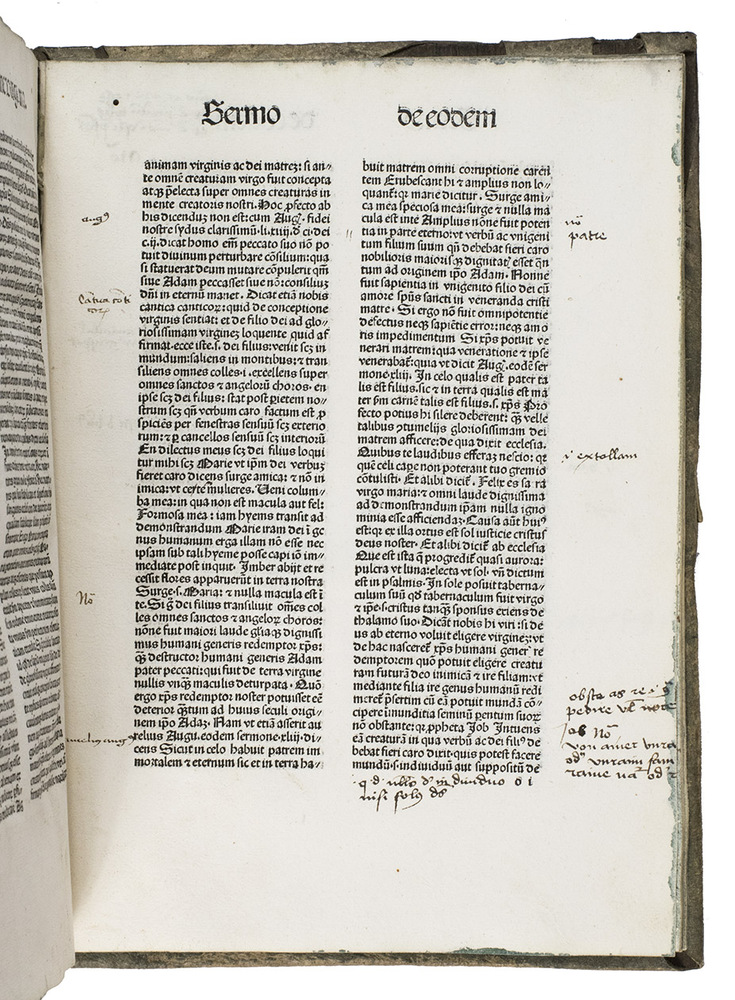 Sermo
de eodem
animam virginis ac dei matreꝫ: si an⸗
te omnē creaturam virgo fuit concepta
atqꝫ p̄electa super omnes creaturas in
mente creatoris nostri. Hoc ꝓfecto ab
his dicenduꝫ non est: cum Augꝰ. fidei
nostre sydus clarissimū. li. xiij. d ci. dei
c. ij. dicat homo em̄ peccato suo nō po
tuit diuinum perturbare cōsilium: qua
si statuerat deum mutare cōpulerit qm̄
siue Adam peccasset siue nō: consiliuꝫ
dn̄i in eternū manet. Dicat etiā nobis
cantica canticoꝝ: quid de conceptione
virginis sentiat: et de filio dei ad glo⸗
riosissimam virgineꝫ loquente quid af
firmat. ecce iste. s. dei filius: venit seꝫ in
mundum: saliens in montibus: ⁊ tran
siliens omnes colles. i. excellens super
omnes sanctos ⁊ angeloꝝ choros. en
ipse seꝫ dei filius: stat post ꝑietem no⸗
strum seꝫ qn̄ verbum caro factum est ꝓ
spiciēs per fenestras sensuū seꝫ exterio
rum: ⁊ ꝑ cancellos sensuū seꝫ interiorū
En dilectus meus seꝫ dei filius loqui
tur mihi seꝫ Marie vt ip̄m dei verbuꝫ
fieret caro dicens surge amica: ⁊ nō in
imica: vt cetere mulieres. Ueni colum⸗
ba mea: in qua non est macula aut fel:
Formosa mea: iam hyems transit ad
demonstrandum Marie iram dei ī ge
nus humanum erga illam nō esse nec
ipsam sub tali hyeme posse capi iō im⸗
mediate post inquit. Imber abijt et re
cessit flores apparuerūt in terra nostra
Surge. s. Maria: ⁊ nulla macula est ī
te. Si ḡ dei filius transiliuit om̄es col
les omnes sanctos ⁊ angeloꝝ choros:
nōne fuit maiori laude gliaqꝫ digniſſi
mus humani generis redemptor xp̄s:
qꝫ destructor humani generis Adam
pater peccati: qui fuit de terra virgine
nullis vnqꝫ maculis deturpata. Quō
ergo xp̄s redemptor noster potuisset eē
deterior qꝫtum ad huius seculi origi⸗
nem ip̄o Adaꝫ. Nam vt etiā asserit au
relius Augu. eodem sermone. xliij. di⸗
cens Sicut in celo habuit patrem im
mortalem ⁊ eternum sic et in terra ha⸗
buit matrem omni corruptione carēn
tem Erubescant hi ⁊ amplius non lo⸗
quant̄: qꝛ marie dicitur. Surge ami⸗
ca mea speciosa mea: surge ⁊ nulla ma
cula est in te Amplius nōne fuit poten
tia in parte eterno: vt verbū ac vnigeni
tum filium suum qn̄ debebat fieri caro
nobilioris maiorisqꝫ dignitatꝭ esset qn̄
tum ad originem ip̄o Adam. Nonne
fuit sapientia in vnigenito filio dei cū
amore sp̄us sancti in veneranda cristi
matre. Si ergo nō fuit omnipotentie
defectus neqꝫ sapiētie error: neqꝫ amo
ris impedimentum Si xp̄s potuit ve
nerari matrem: qua veneratione ⁊ ipse
venerabat̄: quia vt dicit Augꝰ. eodē ser
mone. xliij. In celo qualis est pater ta
lis est filius. sic ⁊ in terra qualis est ma
ter ẜm carnē talis est filius. s. xp̄s Pro
fecto potius hi silere deberent: qꝫ velle
talibus ꝯtumelijs gloriosissimam dei
matrem afficere: de qua dixit ecclesia.
Quibus te laudibus efferaꝫ nescio: qꝛ
quē celi cape non poterant tuo gremio
cōtulisti. Et alibi dicit. Felix es sa ra
virgo maria: ⁊ omni laude dignissima
ad demonstrandum ip̄am nulla igno
minia esse afficiendaꝫ. Causa aūt huiꝰ
est: qꝛ ex illa ortus est sol iusticie cristus
deus noster. Et alibi dicit ab ecclesia
Que est ista q̄ progredit̄ quasi aurora:
pulcra vt luna: electa vt sol. vn̄ dictum
est in psalmis. In sole posuit taberna⸗
culum suū qd̄ tabernaculum fuit virgo
⁊ ip̄e. s. cristus tanqꝫ sponsus exiens de
thalamo suo. Dicāt nobis hi viri: si de
us ab eterno voluit eligere virgineꝫ: vt
de hac nasceret̄ xp̄s humani gener̄ re
demptorem quō potuit eligere creatu
ram futurā deo inimicā ⁊ ire filiam: vt
mediante filia ire genus humanū redi
meret p̄sertim cū eā potuit mundā cō⸗
cipere immundītia seminū ꝑentum suoꝝ
nō obstante: qꝛ ꝓpheta Job Intuens
eā creaturā in qua verbū ac dei filiꝰ de
bebat fieri caro dixit: quis potest facere
mundū. s. indiuiduū aut suppositū de
Nō
patre
extollam
Nō